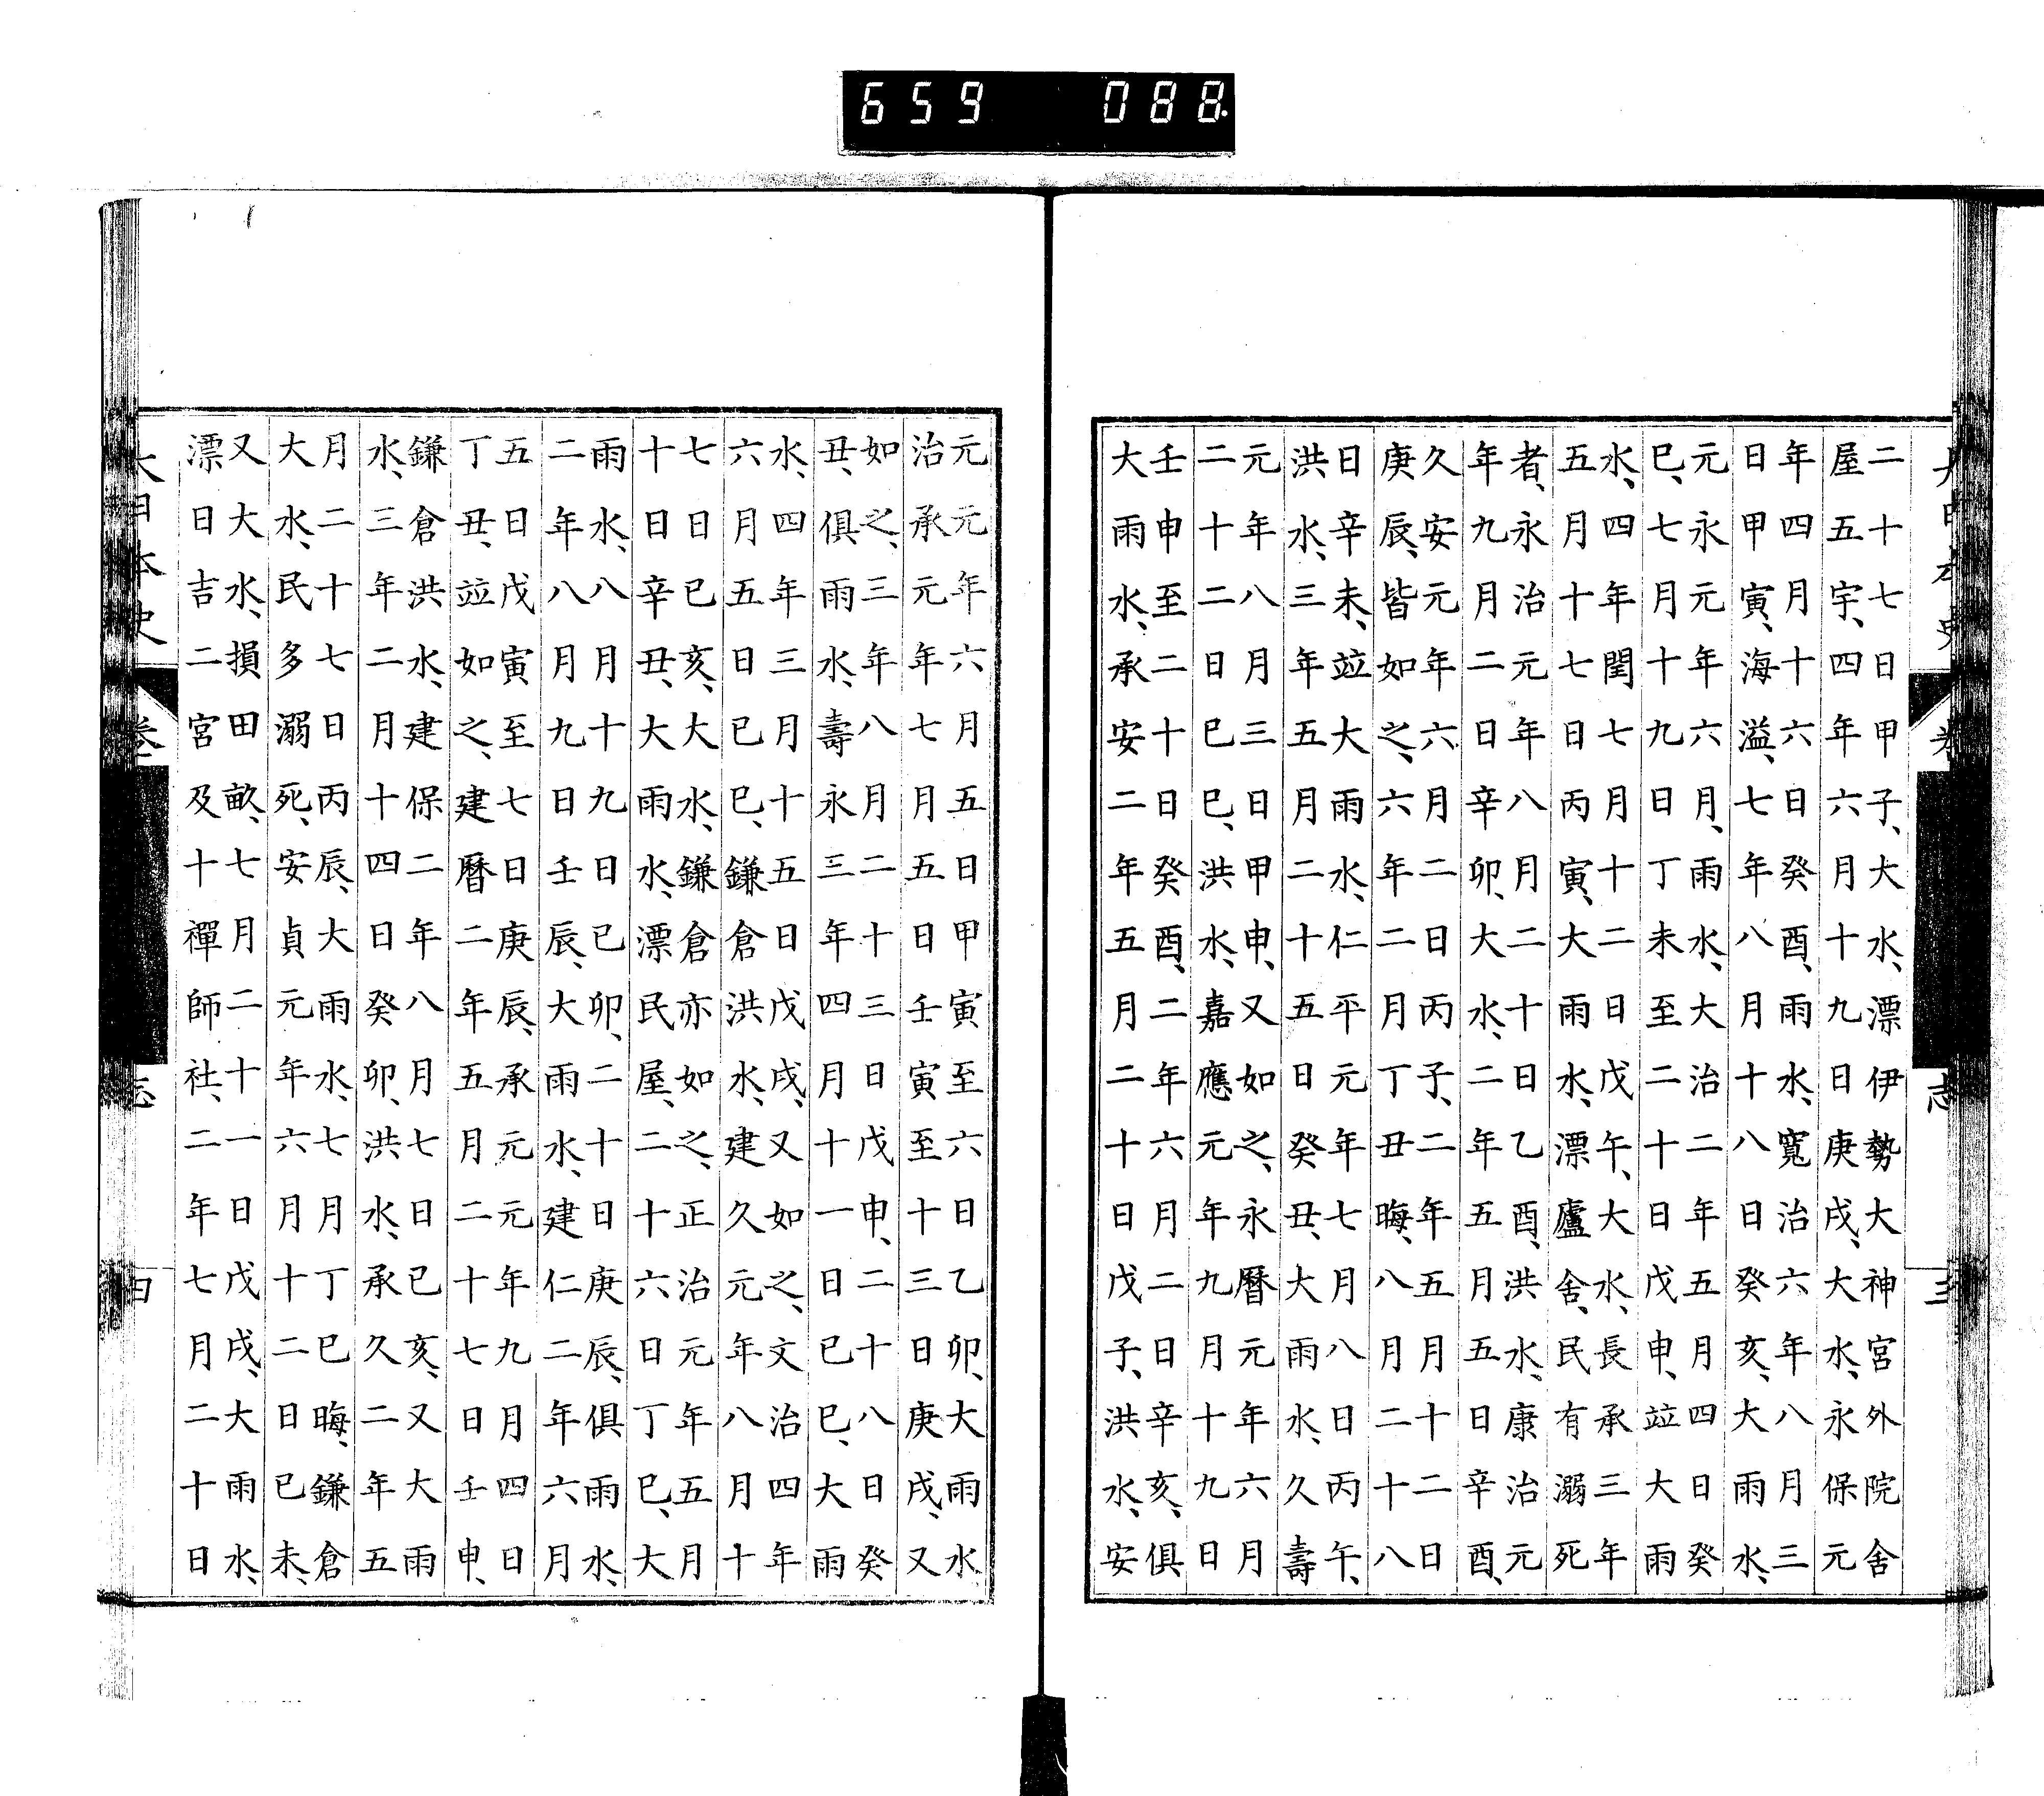 659 088
二十七日甲子、大水、漂伊勢大神宮外院舍
屋五宇、四年六月十九日庚戌、大水、永保元
年四月十六日癸酉、雨水、寬治六年八月三
日甲寅、海溢、七年八月十八日癸亥、大雨水、
元永元年六月、雨水、大治二年五月四日癸
巳、七月十九日丁未至二十日戊申、竝大雨
水、四年閏七月十二日戊午、大水、長承三年
五月十七日丙寅、大雨水、漂廬舍、民有溺死
者、永治元年八月二十日乙酉、洪水、康治元
年九月二日辛卯、大水、二年五月五日辛酉、
久安元年六月二日丙子、二年五月十二日
庚辰、皆如之、六年二月丁丑晦、八月二十八
日辛未、竝大雨水、仁平元年七月八日丙午、
洪水、三年五月二十五日癸丑、大雨水、久壽
元年八月三日甲申、又如之、永曆元年六月
二十二日巳巳、洪水、嘉應元年九月十九日
壬申至二十日癸酉、二年六月二日辛亥、俱
大雨水、承安二年五月二十日戊子、洪水、安
元元年六月五日甲寅至六日乙卯、大雨水
治承元年七月五日壬寅至十三日庚戌、又
如之、三年八月二十三日戊申、二十八日癸
丑、俱雨水、壽永三年四月十一日巳巳、大雨
水、四年三月十五日戊戌、又如之、文治四年
六月五日巳巳、鎌倉洪水、建久元年八月十
七日巳亥、大水、鎌倉亦如之、正治元年五月
十日辛丑、大雨水、漂民屋、二十六日丁巳、大
雨水、八月十九日巳卯、二十日庚辰、俱雨水、
二年八月九日壬辰、大雨水、建仁二年六月
五日戊寅至七日庚辰、承元元年九月四日
丁丑、竝如之、建曆二年五月二十七日壬申、
鎌倉洪水、建保二年八月七日巳亥、又大雨
水、三年二月十四日癸卯、洪水、承久二年五
月二十七日丙辰、大雨水、七月丁巳晦、鎌倉
大水、民多溺死、安貞元年六月十二日巳未、
又大水、損田畝、七月二十一日戊戌、大雨水、
漂日吉二宮及十禪師社、二年七月二十日
大日本史 卷 志 四